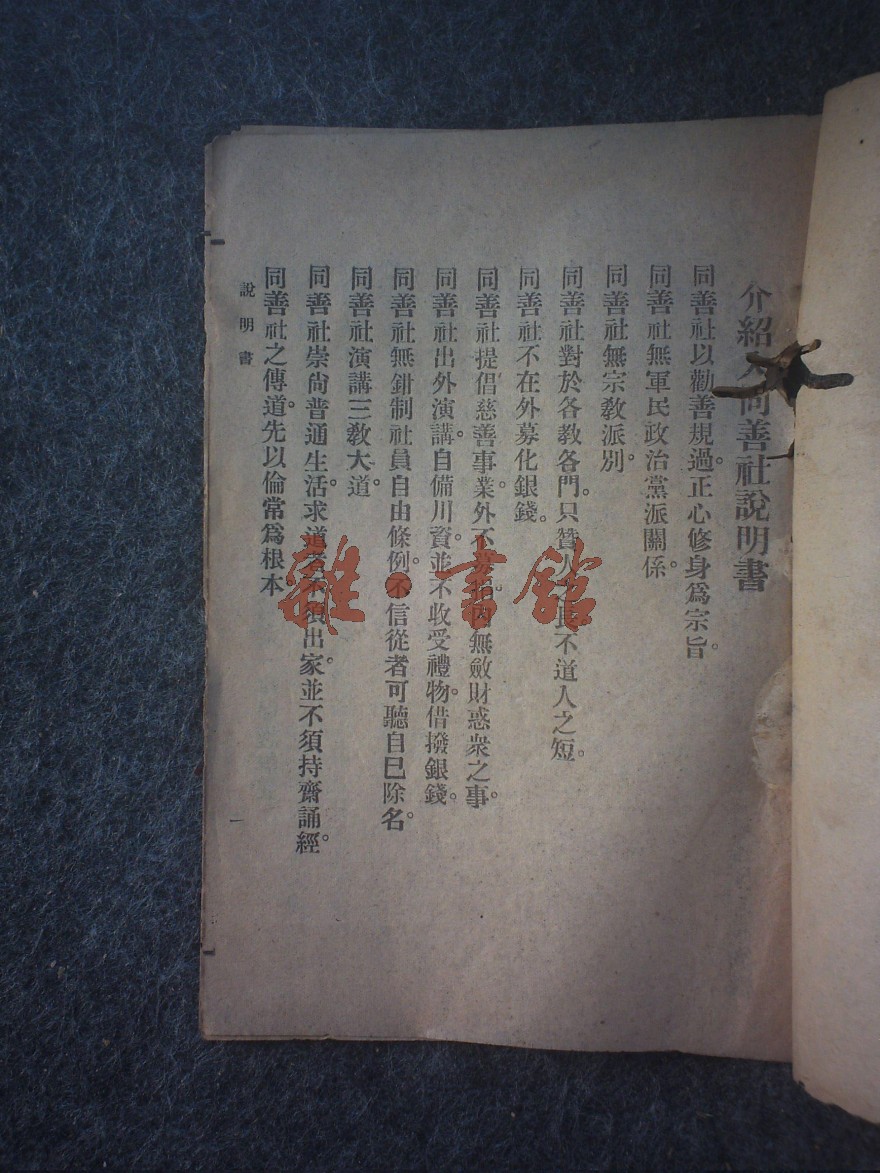 介紹入同善社說明書
同善社以勸善規過。正心修身爲宗旨。
同善社無軍民政治黨派關係。
同善社無宗敎派別。
同善社對於各敎各門。只贊人之長不道人之短。
同善社不在外募化銀錢。
同善社提倡慈善事業。外不募捐。內無斂財惑衆之事。
同善社出外演講。自備川資。並不收受禮物。借撥銀錢。
同善社無鉗制社員自由條例。不信從者可聽自巳除名。
同善社演講三敎大道。
同善社崇尙普通生活。求道者不須出家。並不須持齋誦經。
同善社之傳道。先以倫常爲根本
說明書
一
雜·書館